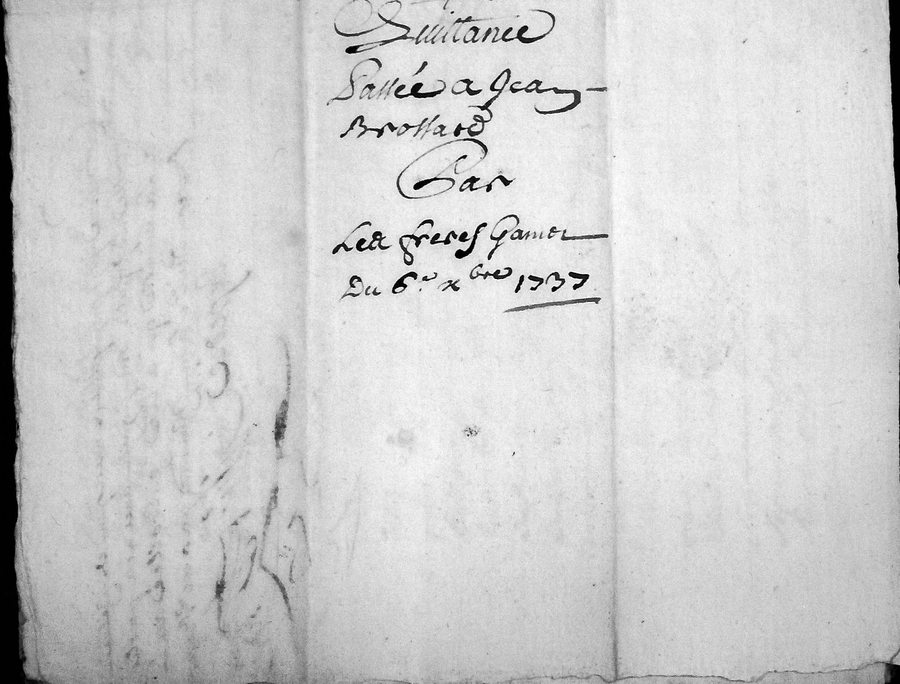 Quittance
Passée a Jean
Brossard
Par
Les freres Gamer
Du 6.e xbre 1737